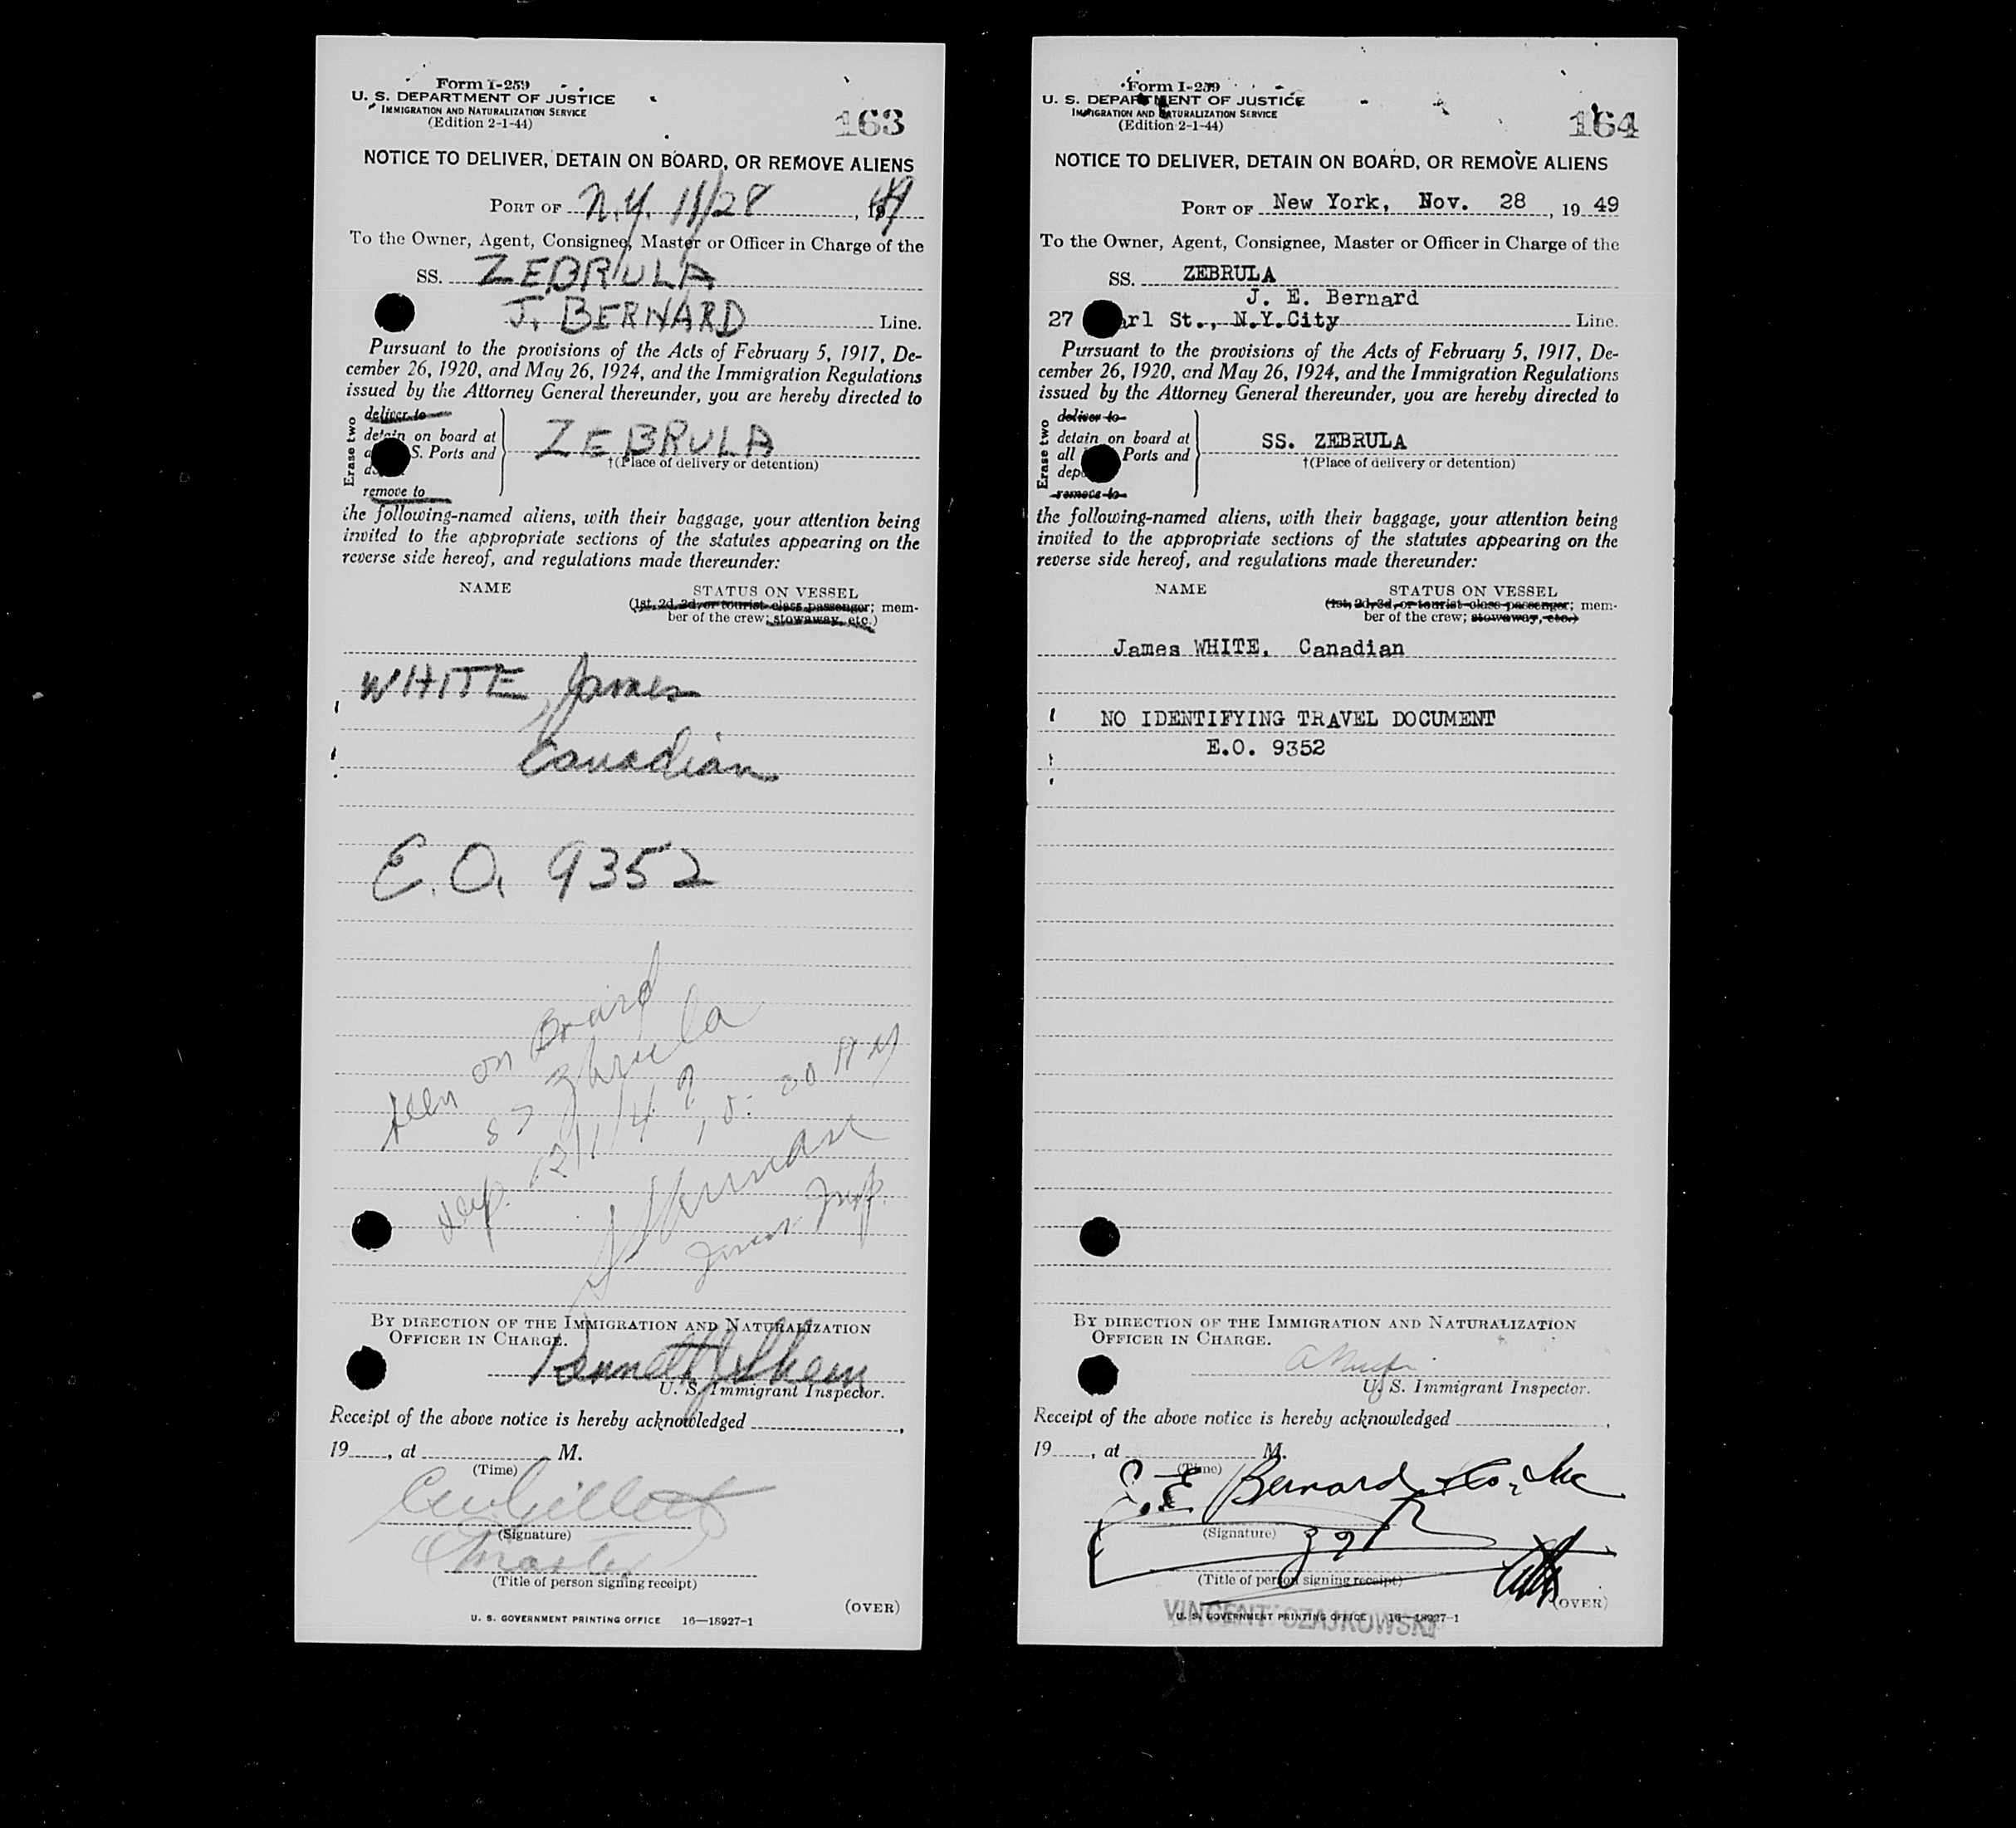 Form I-259
U. S. DEPARTMENT OF JUSTICE
IMMIGRATION AND NATURALIZATION SERVICE
(Edition 2-1-44)
163
NOTICE TO DELIVER, DETAIN ON BOARD, OR REMOVE ALIENS
PORT OF N.Y. 11/28, 1949
To the Owner, Agent, Consignee, Master or Officer in Charge of the
SS. ZEBRULA
J. BERNARD Line.
Pursuant to the provisions of the Acts of February 5, 1917, De-
cember 26, 1920, and May 26, 1924, and the Immigration Regulations
issued by the Attorney General thereunder, you are hereby directed to
Erase two
deliver to
detain on board at
S. Ports and
remove to
ZEBRULA
†(Place of delivery or detention)
the following-named aliens, with their baggage, your attention being
invited to the appropriate sections of the statutes appearing on the
reverse side hereof, and regulations made thereunder:
NAME STATUS ON VESSEL
(1st, 2d, 3d, or tourist class passenger; mem-
ber of the crew; stowaway, etc.)
WHITE, James
Canadian
E.O. 9352
Seen on Board
SS Zebrula
12/1/49 10:00 AM
BY DIRECTION OF THE IMMIGRATION AND NATURALIZATION
OFFICER IN CHARGE.
U. S. Immigrant Inspector.
Receipt of the above notice is hereby acknowledged ,
19 , at M.
(Time)
(Signature)
Master
(Title of person signing receipt)
(OVER)
U. S. GOVERNMENT PRINTING OFFICE 16—18927-1
Form I-259
U. S. DEPARTMENT OF JUSTICE
IMMIGRATION AND NATURALIZATION SERVICE
(Edition 2-1-44)
164
NOTICE TO DELIVER, DETAIN ON BOARD, OR REMOVE ALIENS
PORT OF New York, Nov. 28, 19 49
To the Owner, Agent, Consignee, Master or Officer in Charge of the
SS. ZEBRULA
J. E. Bernard
27 arl St., N.Y.City Line.
Pursuant to the provisions of the Acts of February 5, 1917, De-
cember 26, 1920, and May 26, 1924, and the Immigration Regulations
issued by the Attorney General thereunder, you are hereby directed to
Erase two
deliver to
detain on board at
all Ports and
remove to
SS. ZEBRULA
†(Place of delivery or detention)
the following-named aliens, with their baggage, your attention being
invited to the appropriate sections of the statutes appearing on the
reverse side hereof, and regulations made thereunder:
NAME STATUS ON VESSEL
(1st, 2d, 3d, or tourist class passenger; mem-
ber of the crew; stowaway, etc.)
James WHITE, Canadian
NO IDENTIFYING TRAVEL DOCUMENT
E.O. 9352
BY DIRECTION OF THE IMMIGRATION AND NATURALIZATION
OFFICER IN CHARGE.
U. S. Immigrant Inspector.
Receipt of the above notice is hereby acknowledged ,
19 , at M.
(Time)
J. E. Bernard & Co., Inc
(Signature)
(Title of person signing receipt)
(OVER)
U. S. GOVERNMENT PRINTING OFFICE 16—18927-1
VINCENT CZAJKOWSKI